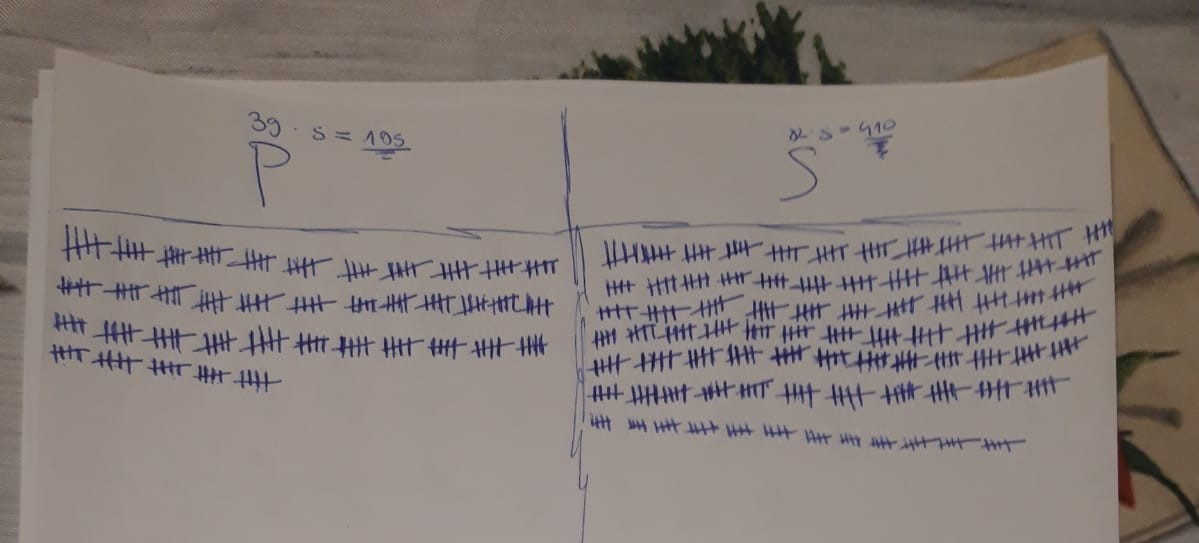 39 · 5 = 195
P
82 · 5 = 410
S